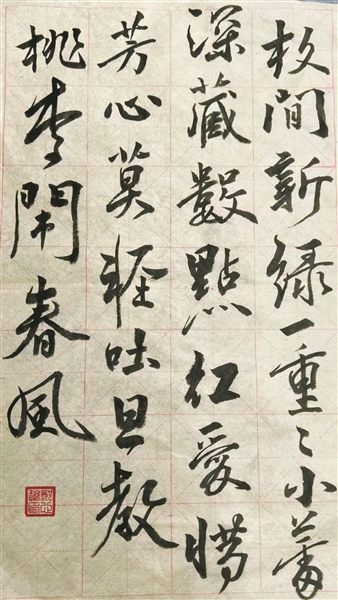 枝間新綠一重〻小蕾
深藏數點紅愛惜
芳心莫輕吐且教
桃李鬧春風